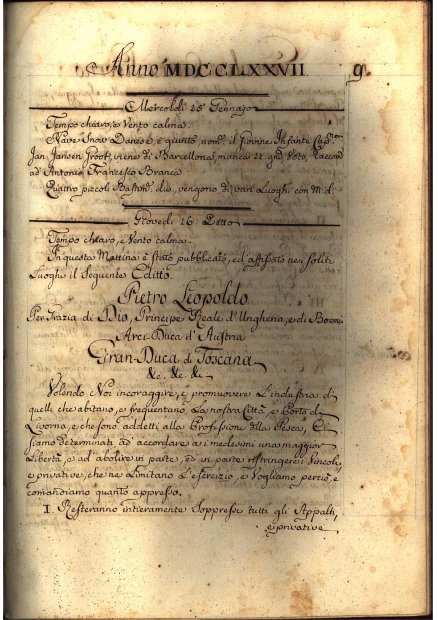 Anno MDCCLXXVII. 9.
Mercoldi 15 Gennajo
Tempo chiaro, e Vento calma.
Nave Snow Danese, è giunto, nom.^t il Giovine Infante Cap.^no
Jan Jansen Groot, viene di Barcellona, manca 22 gni Voto, Raccom.
ad Antonio Francesco Branca
Quattro piccoli Bastim.^ti div. vengono di vari Luoghi con M. d.
Giovedi 16. Detto
Tempo chiaro, e Vento calma.
In questa Mattina è stato pubblicato, ed affissato nei soliti
Luoghi il Seguente Editto.
Pietro Leopoldo
Per Grazia di Dio, Principe Reale d'Ungheria, e di Boemia
Arci-Duca d'Austria
Gran-Duca di Toscana
&c. &c. &c.
Volendo Noi incoraggire, e promuovere L'industria di
quelli che abitano, e frequentano La nostra Città, e Porto di
Livorna, e che sono addetti alla Professione della Pesca, Ci
siamo determinati di accordare ai medesimi una maggior
Libertà, e ad abolire in parte, ed in parte ristringere i Vincoli,
e privative, che ne Limitano L'esercizio, e Vogliamo perciò, e
comandiamo quanto appresso.
I. Resteranno intieramente Soppressi tutti gli Appalti,
e privative